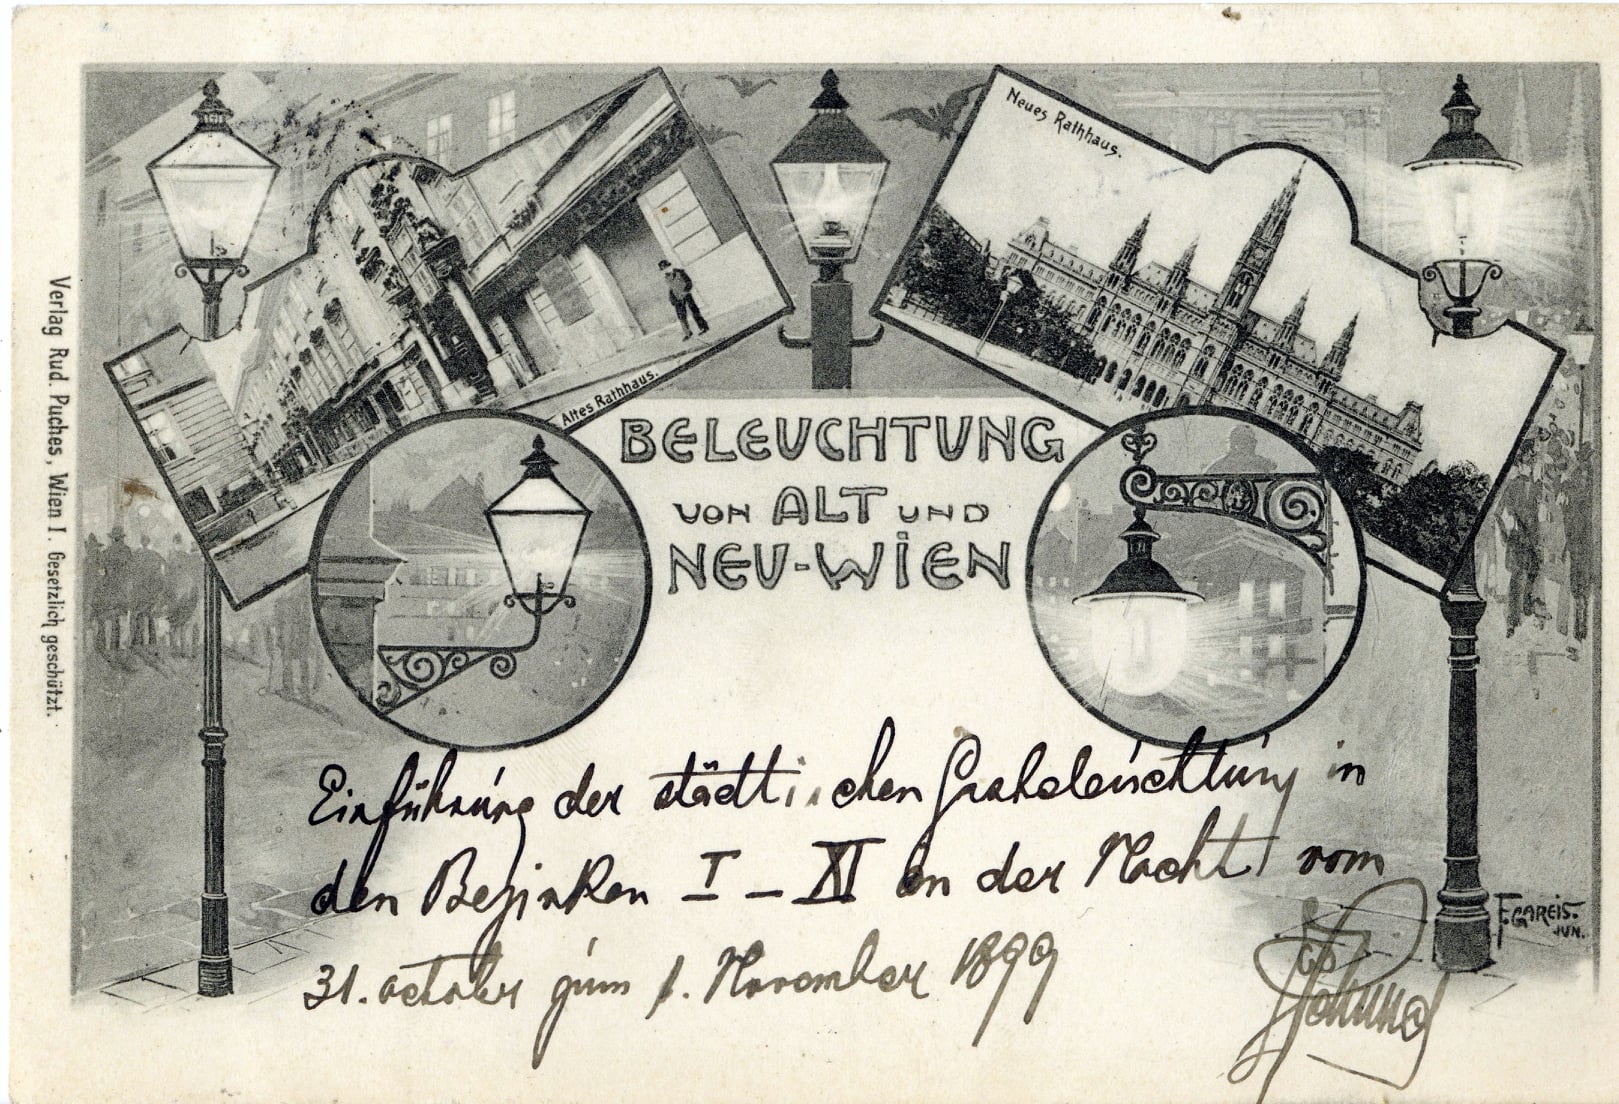 Neues Rathhaus.
Altes Rathhaus.
BELEUCHTUNG
VON ALT UND
NEU-WIEN
Verlag Rud. Puches, Wien I. Gesetzlich geschützt.
Einführung der städtischen Gasbeleuchtung in
den Bezirken I – XI in der Nacht vom
31. october zum 1. November 1899
F. GAREIS.
JUN.